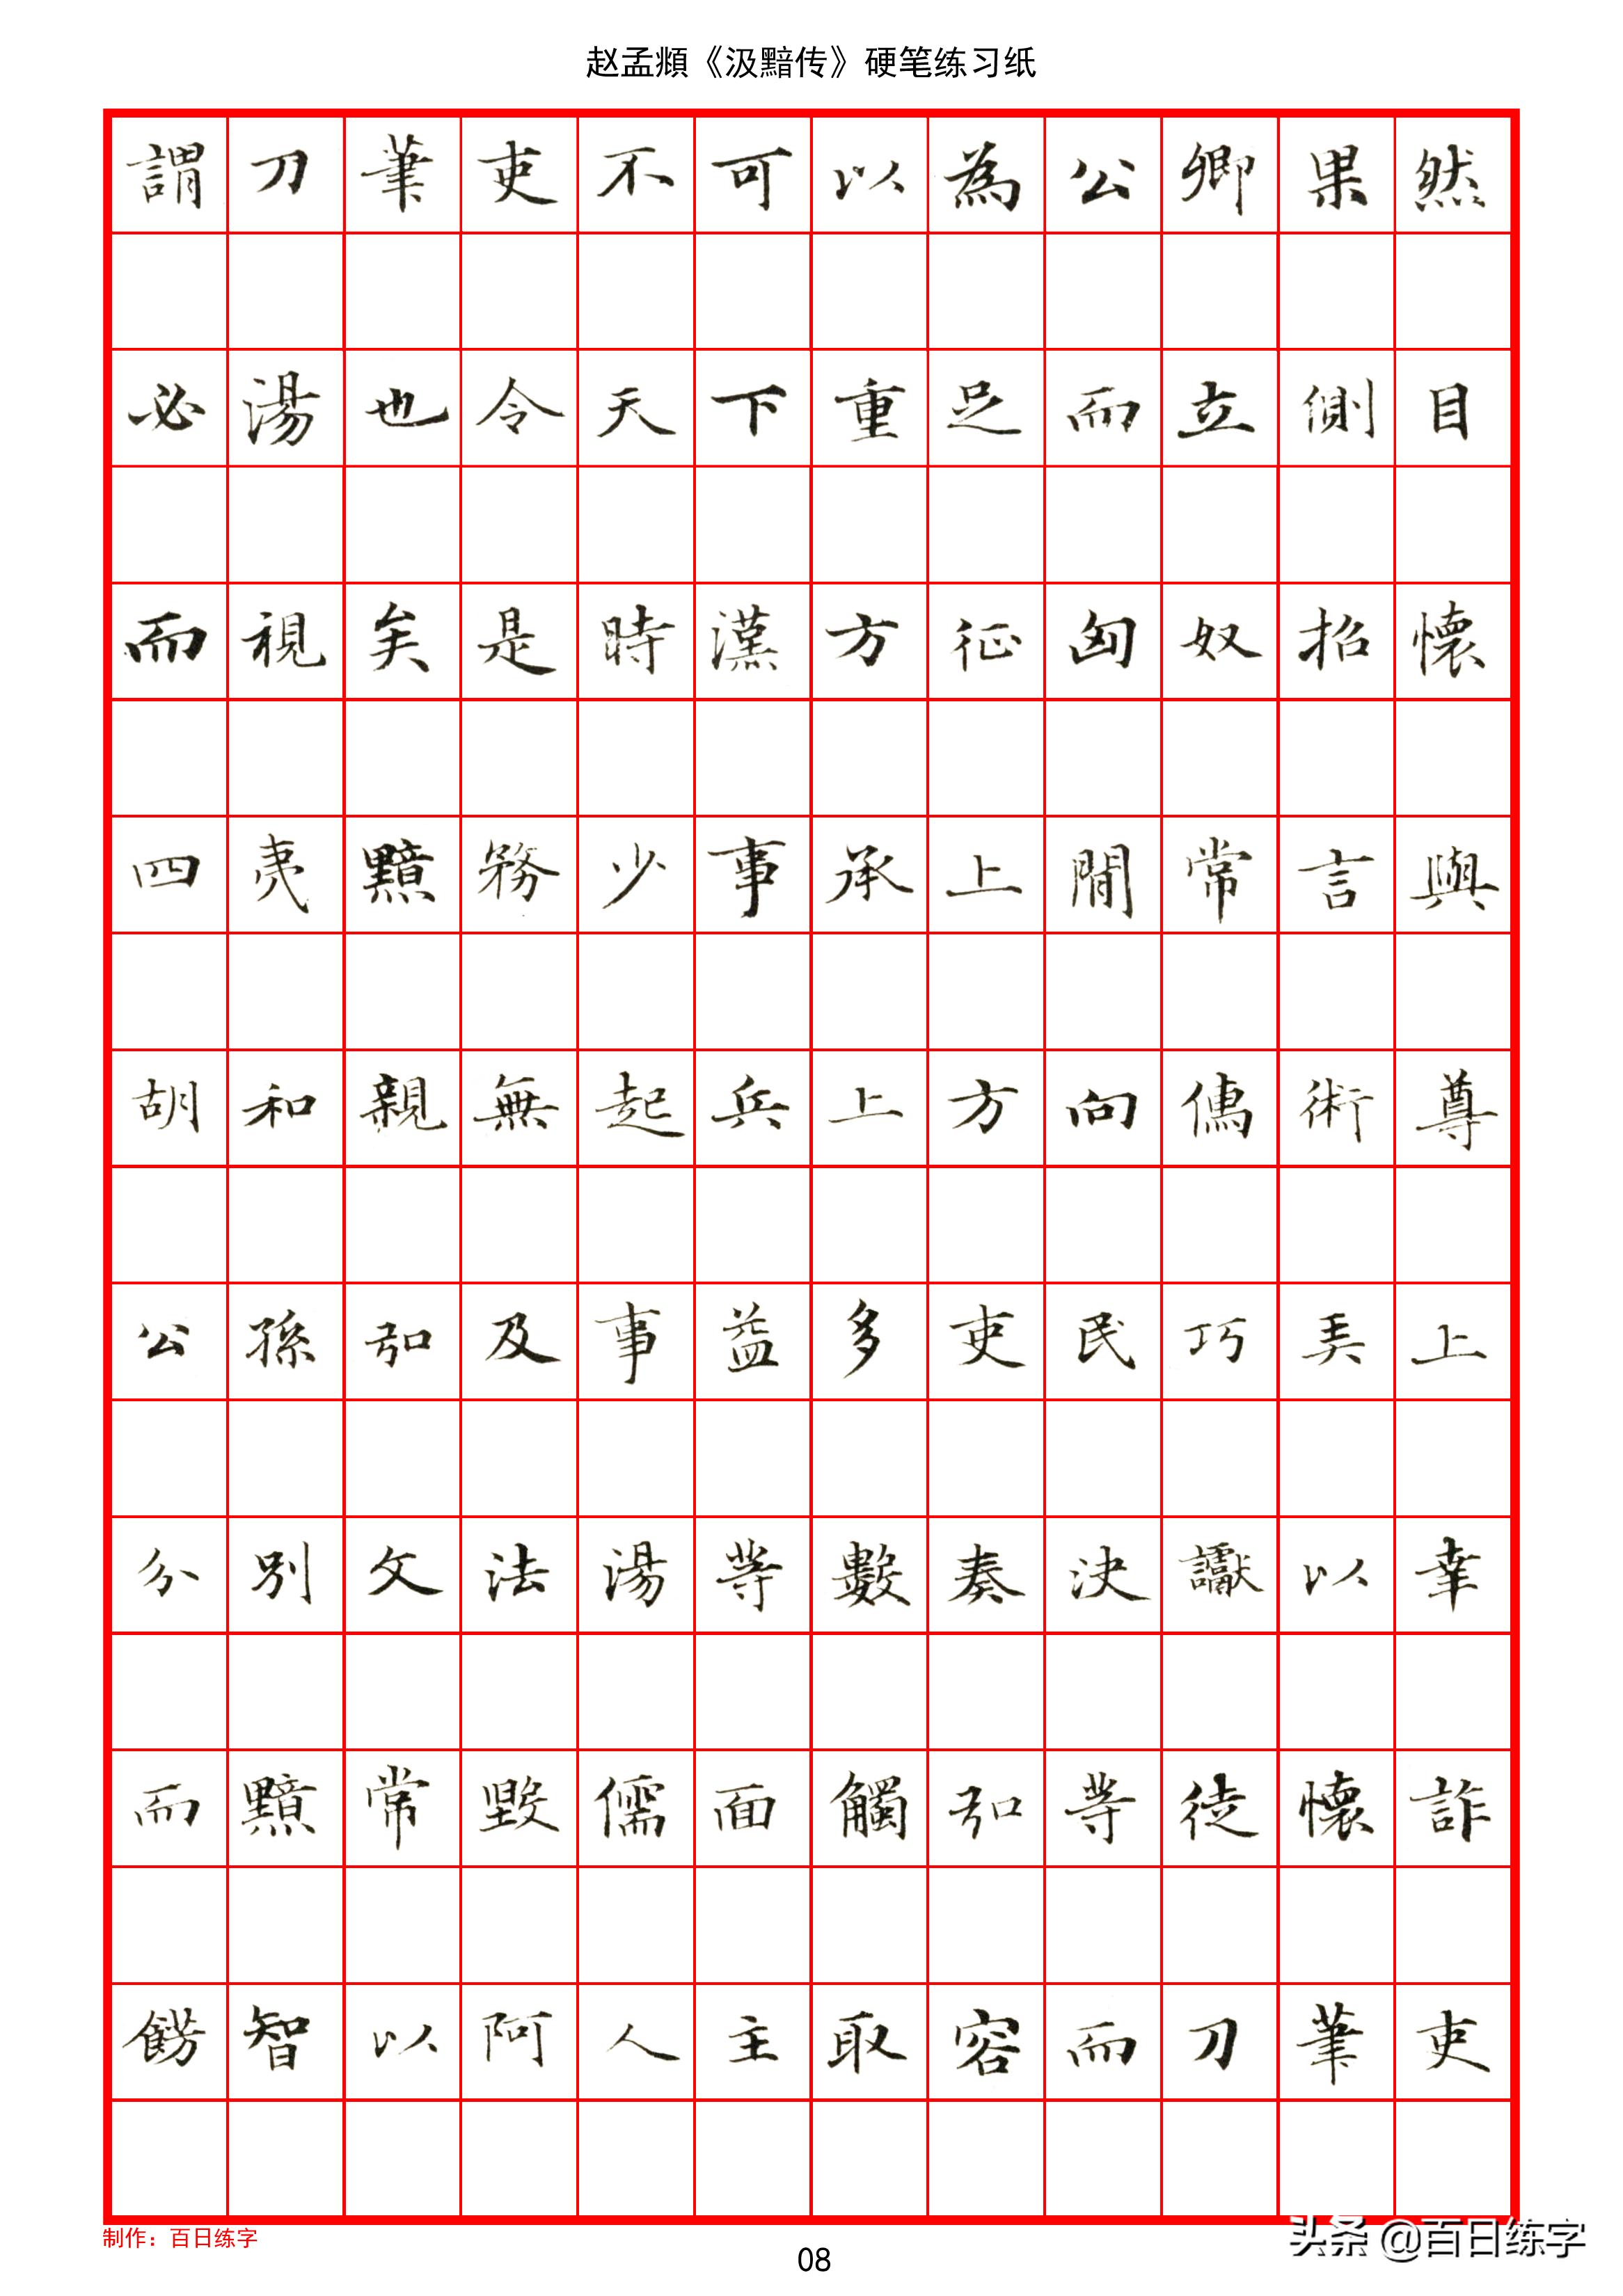 赵孟頫《汲黯传》硬笔练习纸
謂刀筆吏不可以為公卿果然
必湯也令天下重足而立側目
而視矣是時漢方征匈奴招懷
四夷黯務少事承上間常言與
胡和親無起兵上方向儒術尊
公孫弘及事益多吏民巧弄上
分別文法湯等數奏決讞以幸
而黯常毀儒面觸弘等徒懷詐
飾智以阿人主取容而刀筆吏
制作：百日练字
08
头条 @百日练字